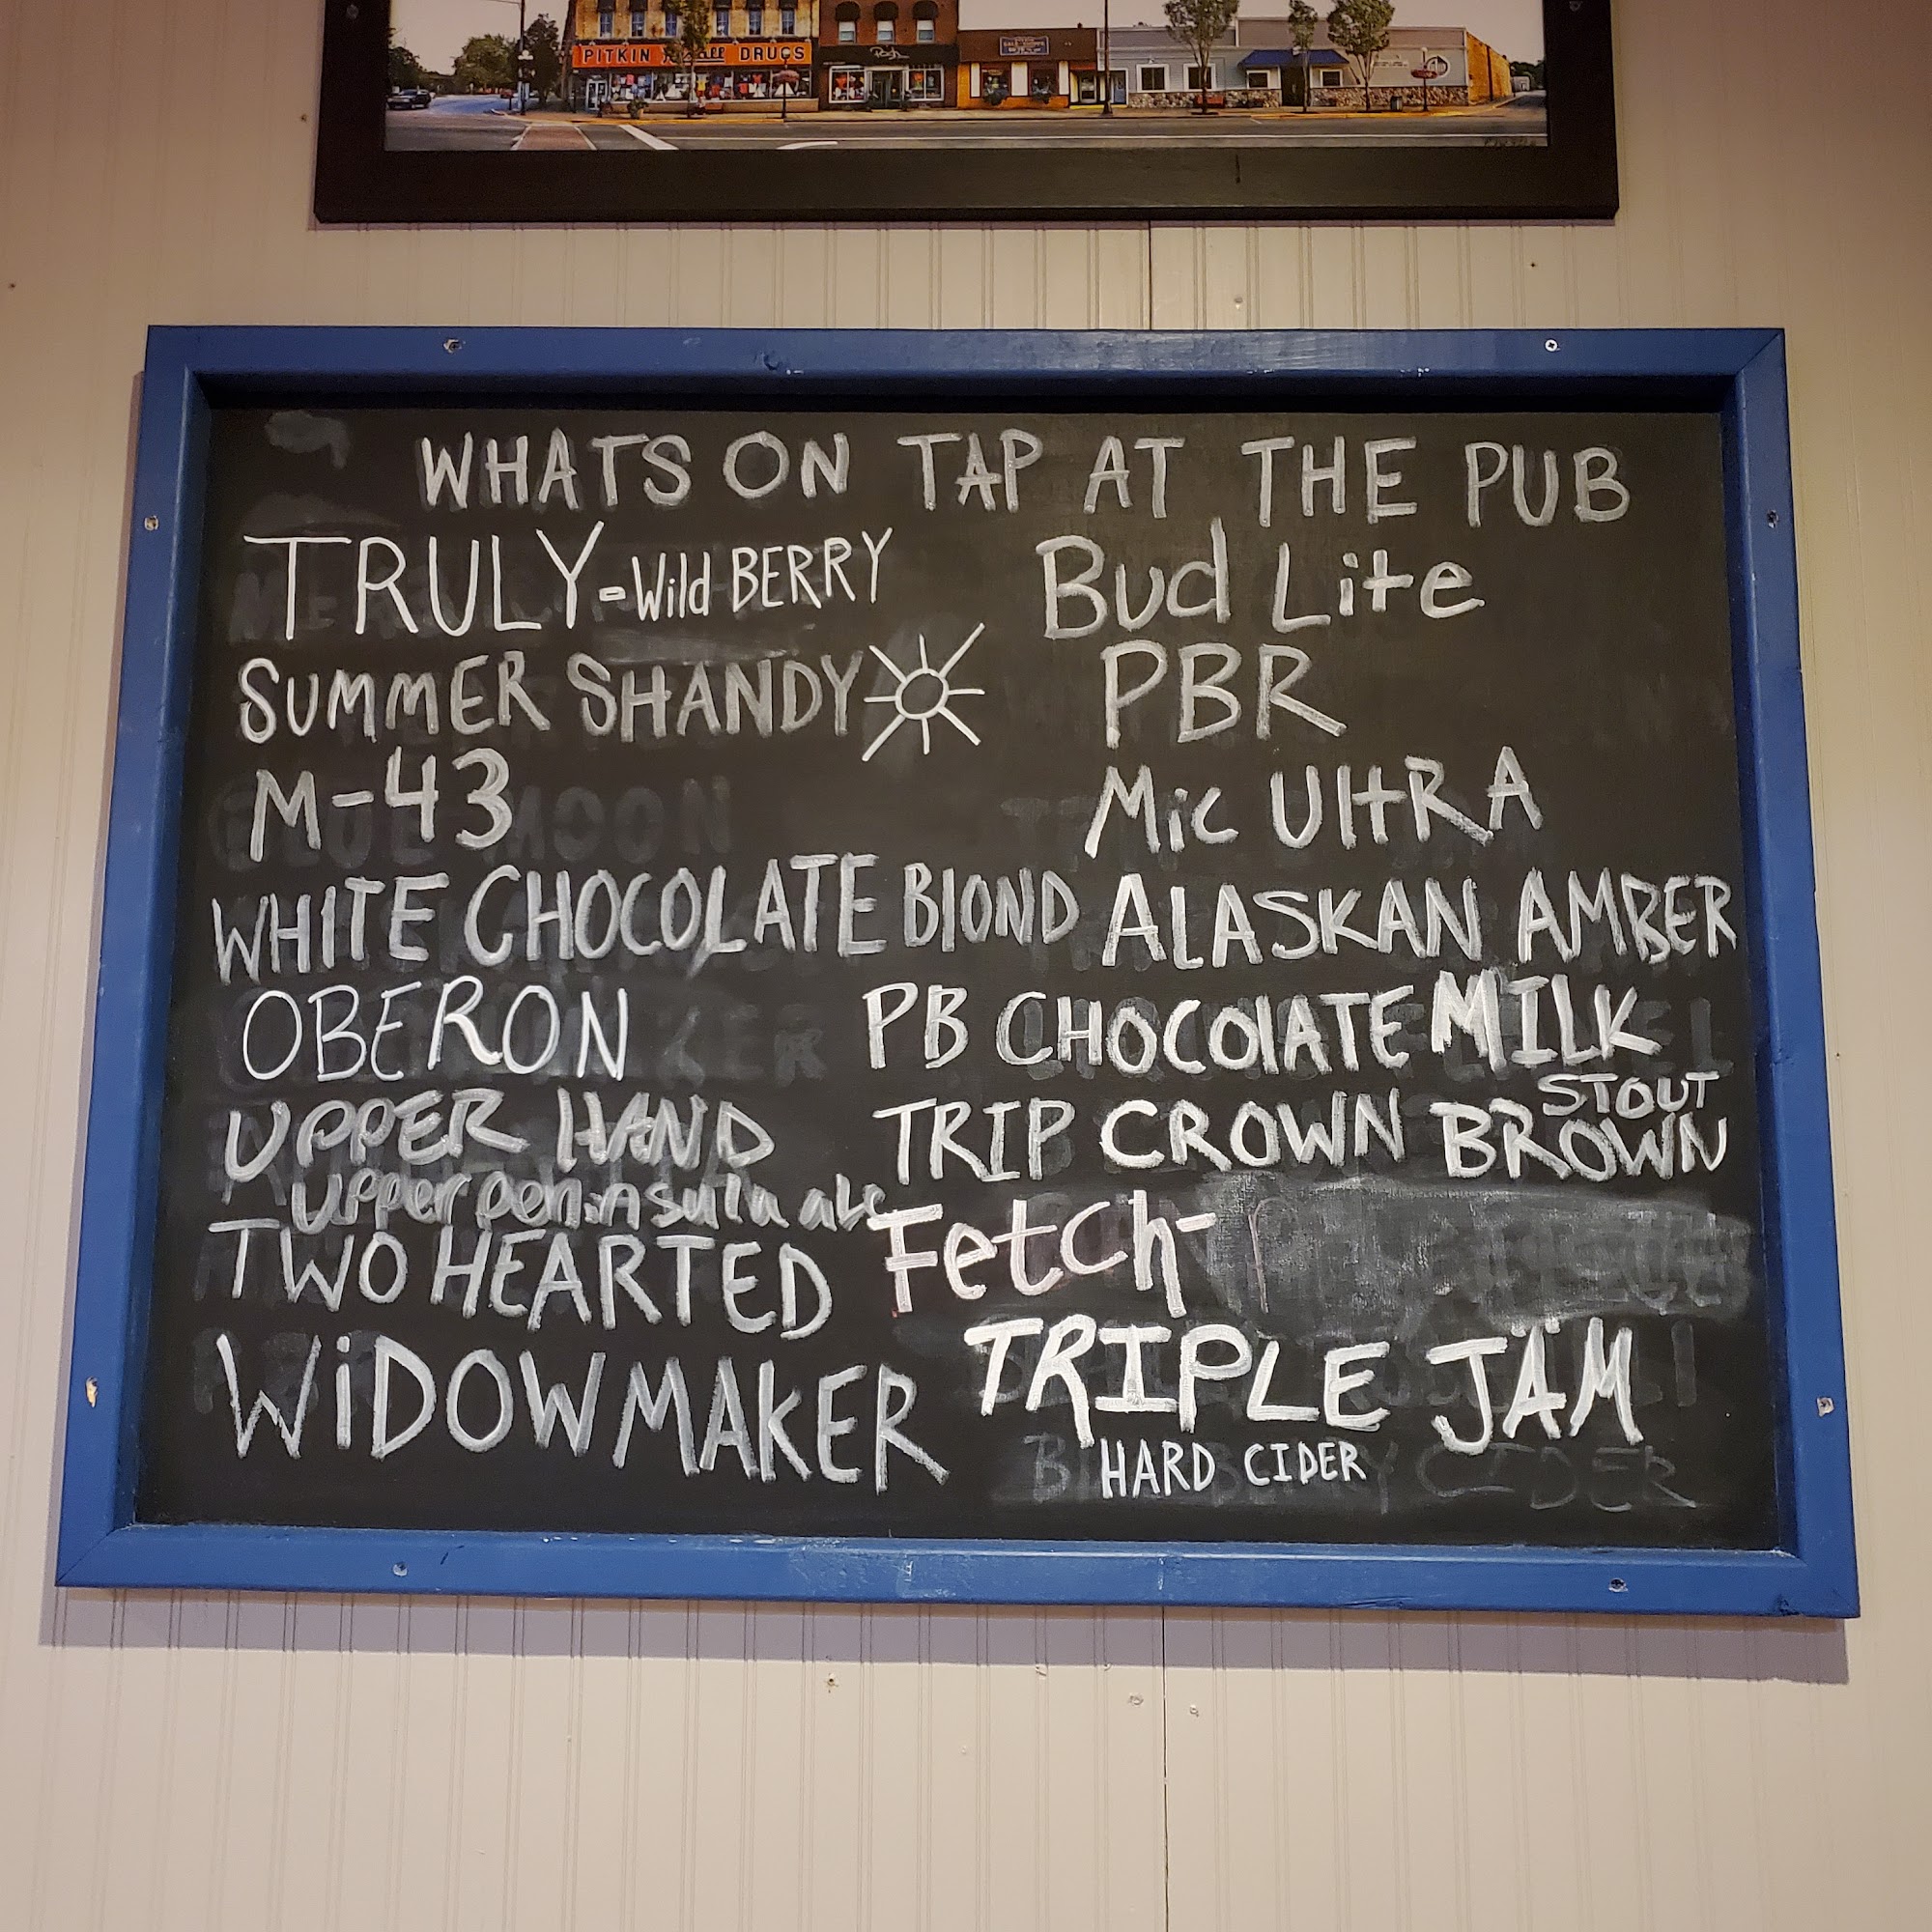 PITKIN Rexall DRUGS
WHATS ON TAP AT THE PUB
TRULY-Wild BERRY
SUMMER SHANDY
M-43
WHITE CHOCOLATE BlOND
OBERON
UPPER HAND
upper peninsula ale
TWO HEARTED
WiDOWMAKER
Bud Lite
PBR
Mic UltRA
ALASKAN AMBER
PB CHOCOlATE MILK
STOUT
TRIP CROWN BROWN
Fetch-
TRIPLE JÄM
HARD CIDER